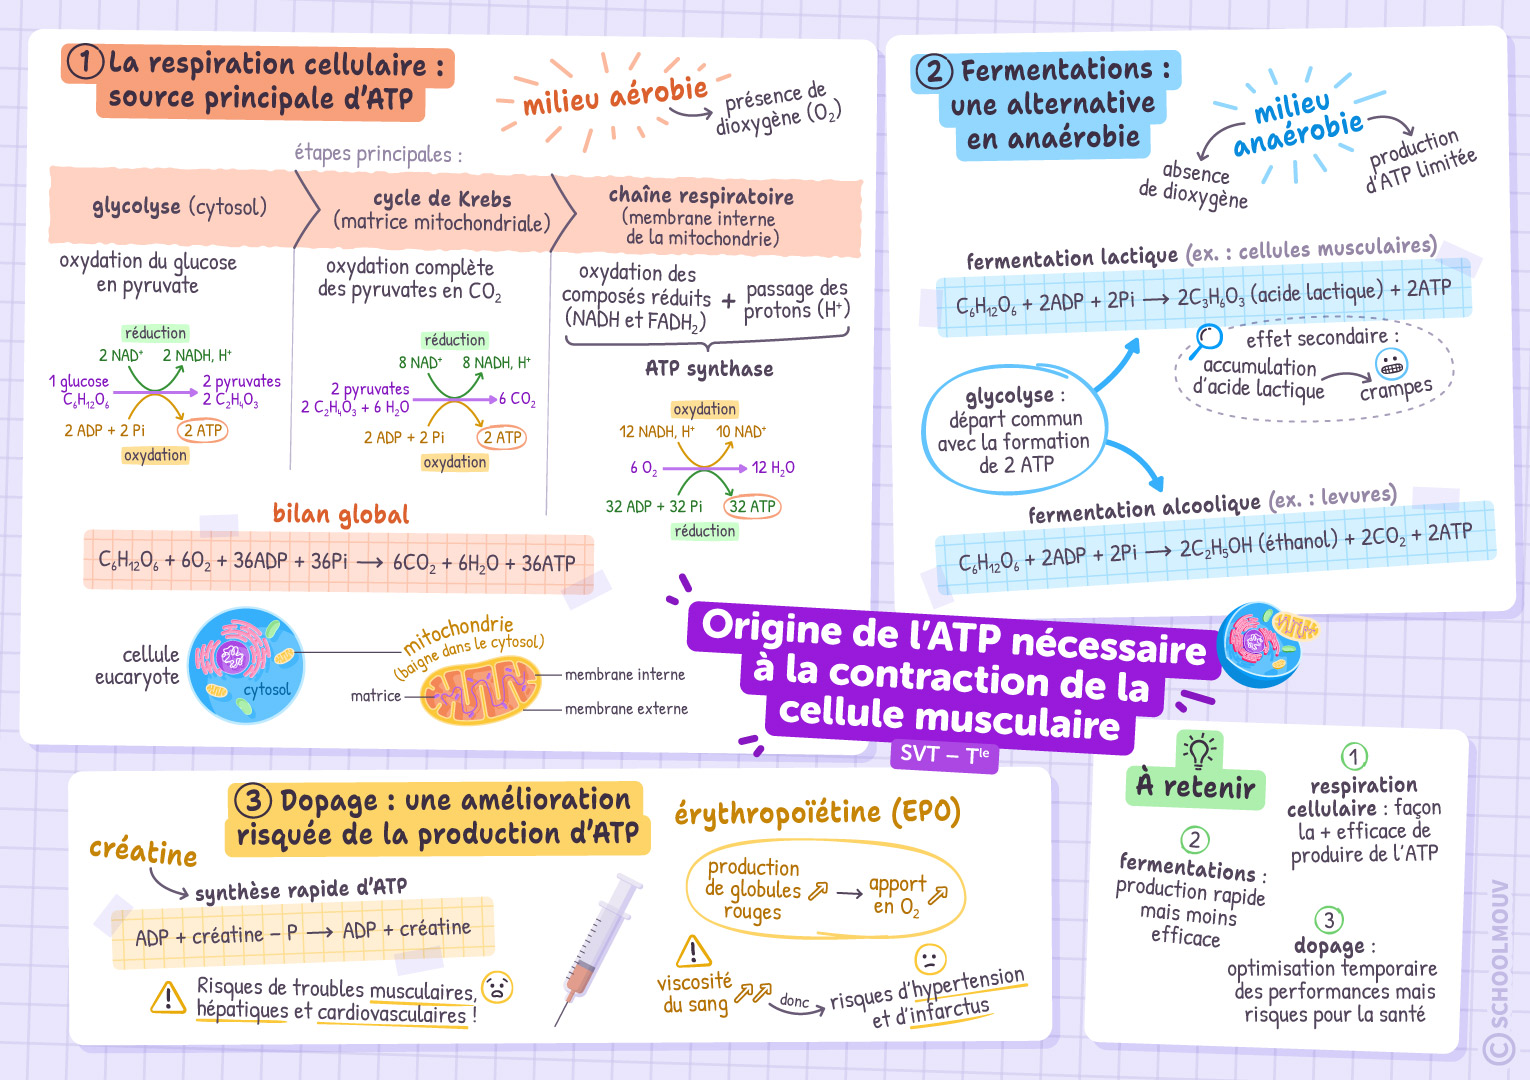 ① La respiration cellulaire :
source principale d'ATP
milieu aérobie
présence de
dioxygène (O₂)
étapes principales :
glycolyse (cytosol)
cycle de Krebs
(matrice mitochondriale)
chaîne respiratoire
(membrane interne
de la mitochondrie)
oxydation du glucose
en pyruvate
réduction
2 NAD⁺ 2 NADH, H⁺
1 glucose
C₆H₁₂O₆
2 pyruvates
2 C₃H₄O₃
2 ADP + 2 Pi 2 ATP
oxydation
oxydation complète
des pyruvates en CO₂
réduction
8 NAD⁺ 8 NADH, H⁺
2 pyruvates
2 C₃H₄O₃ + 6 H₂O
6 CO₂
2 ADP + 2 Pi 2 ATP
oxydation
oxydation des
composés réduits
(NADH et FADH₂)
+
passage des
protons (H⁺)
ATP synthase
oxydation
12 NADH, H⁺ 10 NAD⁺
6 O₂ 12 H₂O
32 ADP + 32 Pi 32 ATP
réduction
bilan global
C₆H₁₂O₆ + 6O₂ + 36ADP + 36Pi → 6CO₂ + 6H₂O + 36ATP
cellule
eucaryote
cytosol
mitochondrie
(baigne dans le cytosol)
matrice
membrane interne
membrane externe
② Fermentations :
une alternative
en anaérobie
milieu
anaérobie
absence
de dioxygène
production
d'ATP limitée
fermentation lactique (ex. : cellules musculaires)
C₆H₁₂O₆ + 2ADP + 2Pi → 2C₃H₆O₃ (acide lactique) + 2ATP
effet secondaire :
accumulation
d'acide lactique
crampes
glycolyse :
départ commun
avec la formation
de 2 ATP
fermentation alcoolique (ex. : levures)
C₆H₁₂O₆ + 2ADP + 2Pi → 2C₂H₅OH (éthanol) + 2CO₂ + 2ATP
Origine de l'ATP nécessaire
à la contraction de la
cellule musculaire
SVT – Tˡᵉ
③ Dopage : une amélioration
risquée de la production d'ATP
créatine
synthèse rapide d'ATP
ADP + créatine – P → ADP + créatine
Risques de troubles musculaires,
hépatiques et cardiovasculaires !
érythropoïétine (EPO)
production
de globules
rouges
apport
en O₂
viscosité
du sang
donc
risques d'hypertension
et d'infarctus
À retenir
①
respiration
cellulaire : façon
la + efficace de
produire de l'ATP
②
fermentations :
production rapide
mais moins
efficace
③
dopage :
optimisation temporaire
des performances mais
risques pour la santé
© SCHOOLMOUV